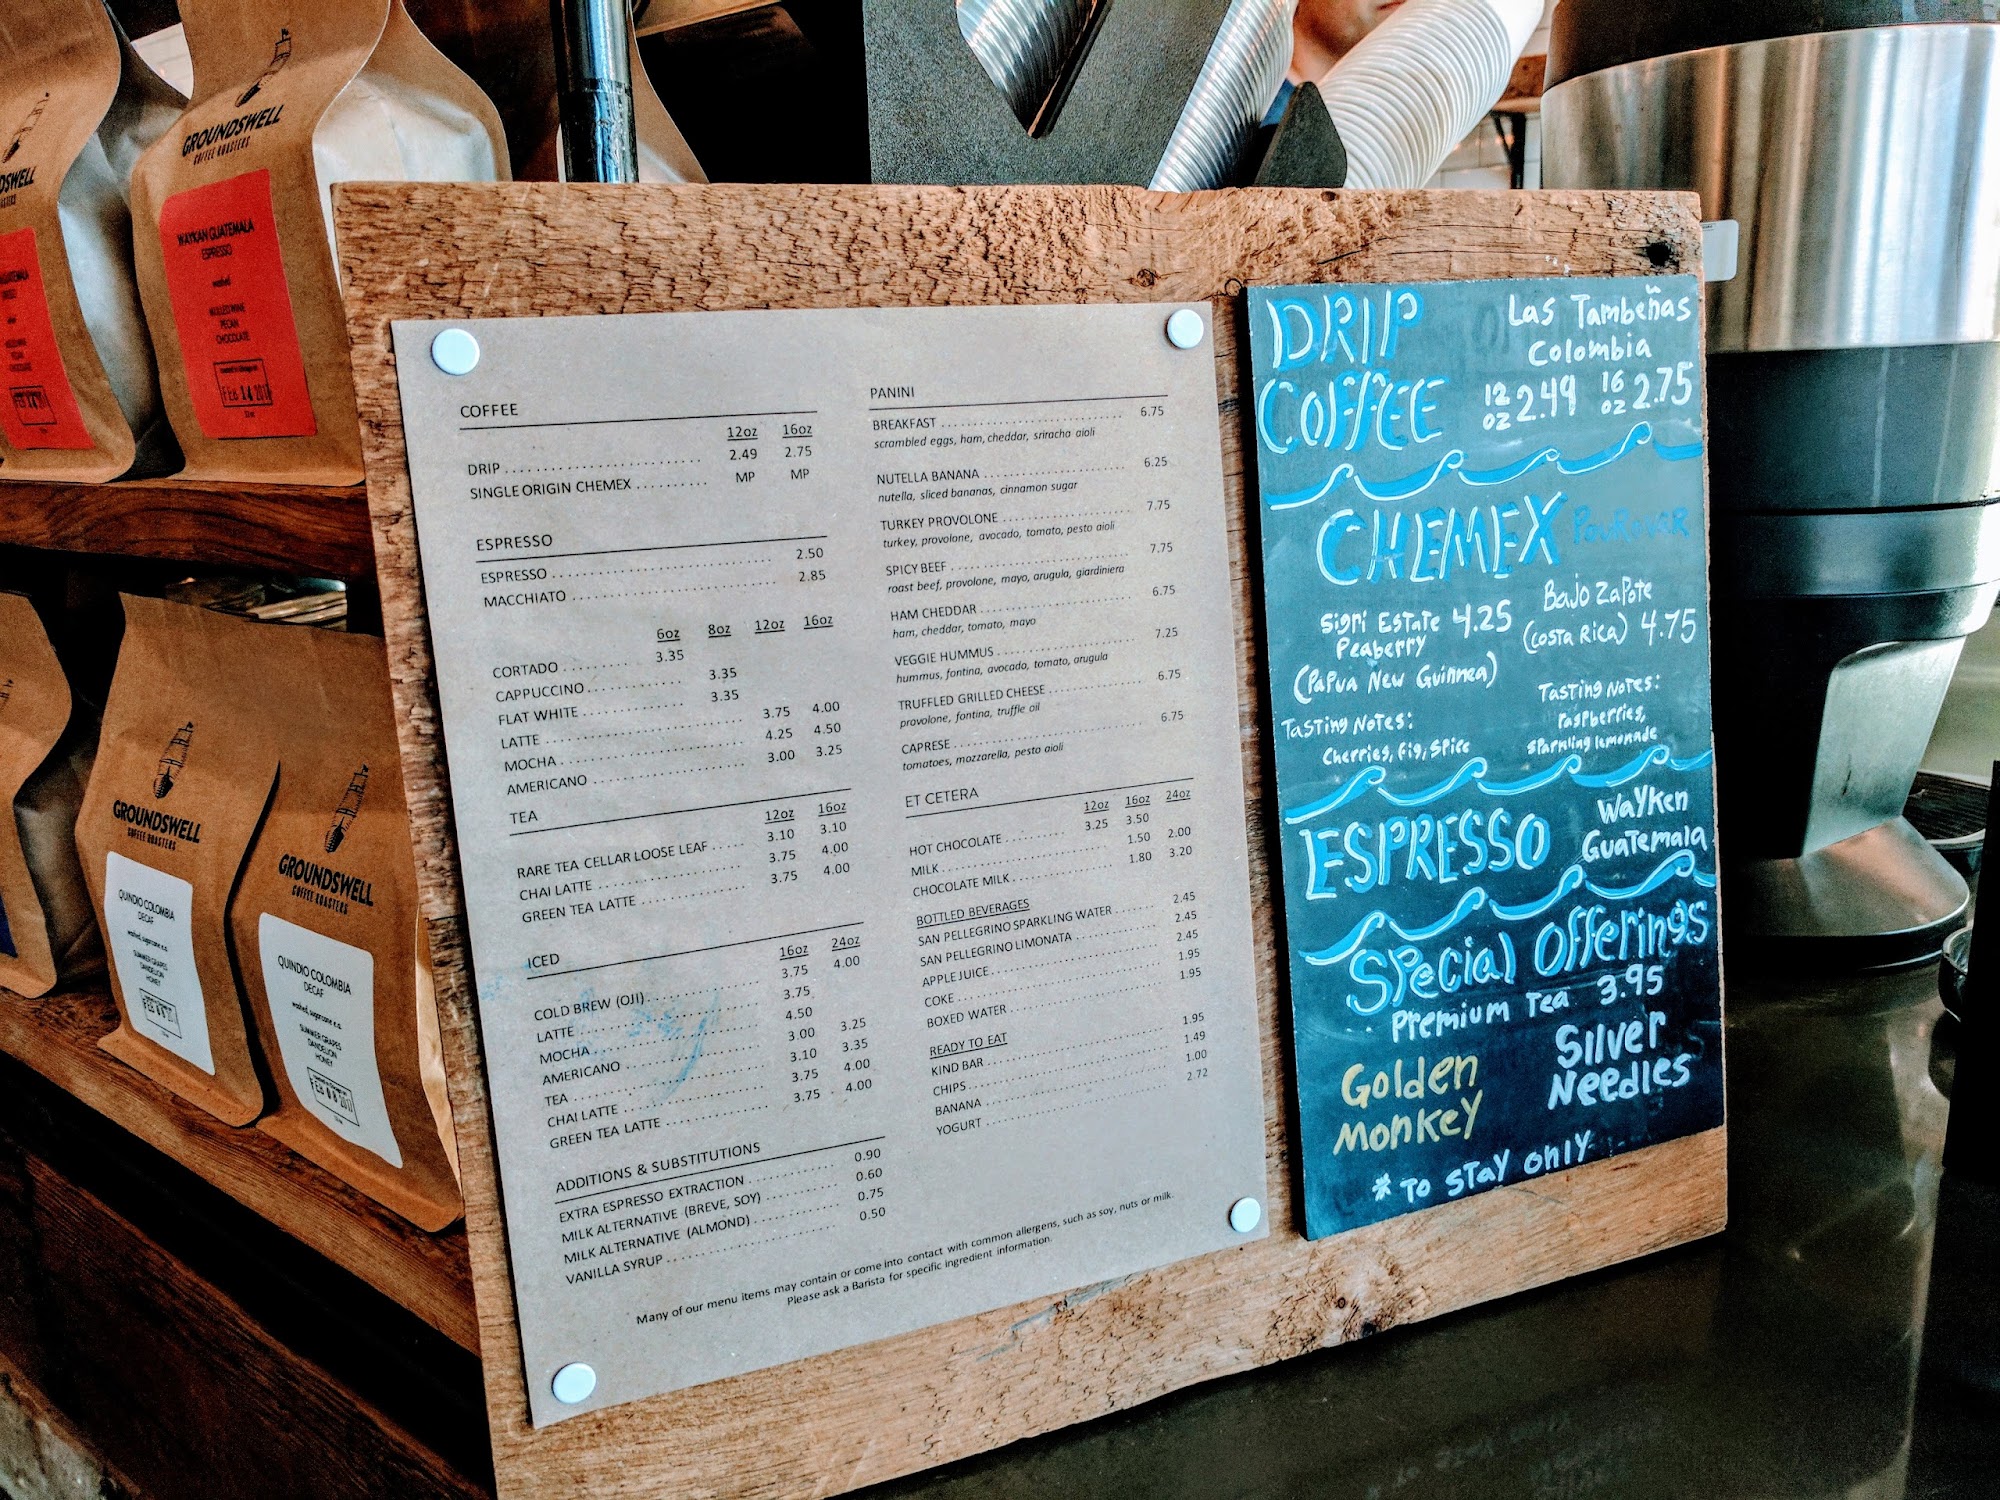 GROUNDSWELL
COFFEE ROASTERS
WAYKAN GUATEMALA
ESPRESSO
washed
MULLED WINE
PECAN
CHOCOLATE
FEB 14 2017
GROUNDSWELL
COFFEE ROASTERS
QUINDIO COLOMBIA
DECAF
washed, sugarcane e.a.
SUMMER GRAPES
DANDELION
HONEY
FEB 08 2017
GROUNDSWELL
COFFEE ROASTERS
QUINDIO COLOMBIA
DECAF
washed, sugarcane e.a.
SUMMER GRAPES
DANDELION
HONEY
FEB 08 2017
COFFEE
12oz 16oz
DRIP 2.49 2.75
SINGLE ORIGIN CHEMEX MP MP
ESPRESSO
ESPRESSO 2.50
MACCHIATO 2.85
6oz 8oz 12oz 16oz
CORTADO 3.35
CAPPUCCINO 3.35
FLAT WHITE 3.35
LATTE 3.75 4.00
MOCHA 4.25 4.50
AMERICANO 3.00 3.25
TEA
12oz 16oz
RARE TEA CELLAR LOOSE LEAF 3.10 3.10
CHAI LATTE 3.75 4.00
GREEN TEA LATTE 3.75 4.00
ICED
16oz 24oz
COLD BREW (OJI) 3.75 4.00
LATTE 3.75
MOCHA 4.50
AMERICANO 3.00 3.25
TEA 3.10 3.35
CHAI LATTE 3.75 4.00
GREEN TEA LATTE 3.75 4.00
ADDITIONS & SUBSTITUTIONS
EXTRA ESPRESSO EXTRACTION 0.90
MILK ALTERNATIVE (BREVE, SOY) 0.60
MILK ALTERNATIVE (ALMOND) 0.75
VANILLA SYRUP 0.50
PANINI
BREAKFAST 6.75
scrambled eggs, ham, cheddar, sriracha aioli
NUTELLA BANANA 6.25
nutella, sliced bananas, cinnamon sugar
TURKEY PROVOLONE 7.75
turkey, provolone, avocado, tomato, pesto aioli
SPICY BEEF 7.75
roast beef, provolone, mayo, arugula, giardiniera
HAM CHEDDAR 6.75
ham, cheddar, tomato, mayo
VEGGIE HUMMUS 7.25
hummus, fontina, avocado, tomato, arugula
TRUFFLED GRILLED CHEESE 6.75
provolone, fontina, truffle oil
CAPRESE 6.75
tomatoes, mozzarella, pesto aioli
ET CETERA
12oz 16oz 24oz
HOT CHOCOLATE 3.25 3.50
MILK 1.50 2.00
CHOCOLATE MILK 1.80 3.20
BOTTLED BEVERAGES
SAN PELLEGRINO SPARKLING WATER 2.45
SAN PELLEGRINO LIMONATA 2.45
APPLE JUICE 2.45
COKE 1.95
BOXED WATER 1.95
READY TO EAT
KIND BAR 1.95
CHIPS 1.49
BANANA 1.00
YOGURT 2.72
Many of our menu items may contain or come into contact with common allergens, such as soy, nuts or milk.
Please ask a Barista for specific ingredient information.
DRIP
COFFEE
Las Tambeñas
Colombia
12 oz 2.49 16 oz 2.75
CHEMEX POUROVER
Sigri Estate 4.25
Peaberry
(Papua New Guinnea)
Tasting Notes:
Cherries, Fig, Spice
Bajo Zapote
(Costa Rica) 4.75
Tasting Notes:
raspberries,
sparkling lemonade
ESPRESSO
Wayken
Guatemala
Special Offerings
Premium Tea 3.95
Golden
Monkey
Silver
Needles
* To Stay only